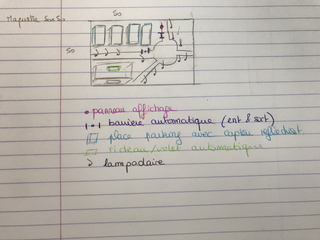 Maquette 50x50
50
50
panneau affichage
barrière automatique (ent & sort)
place parking avec capteur
rideau/volet automatique
lampadaire